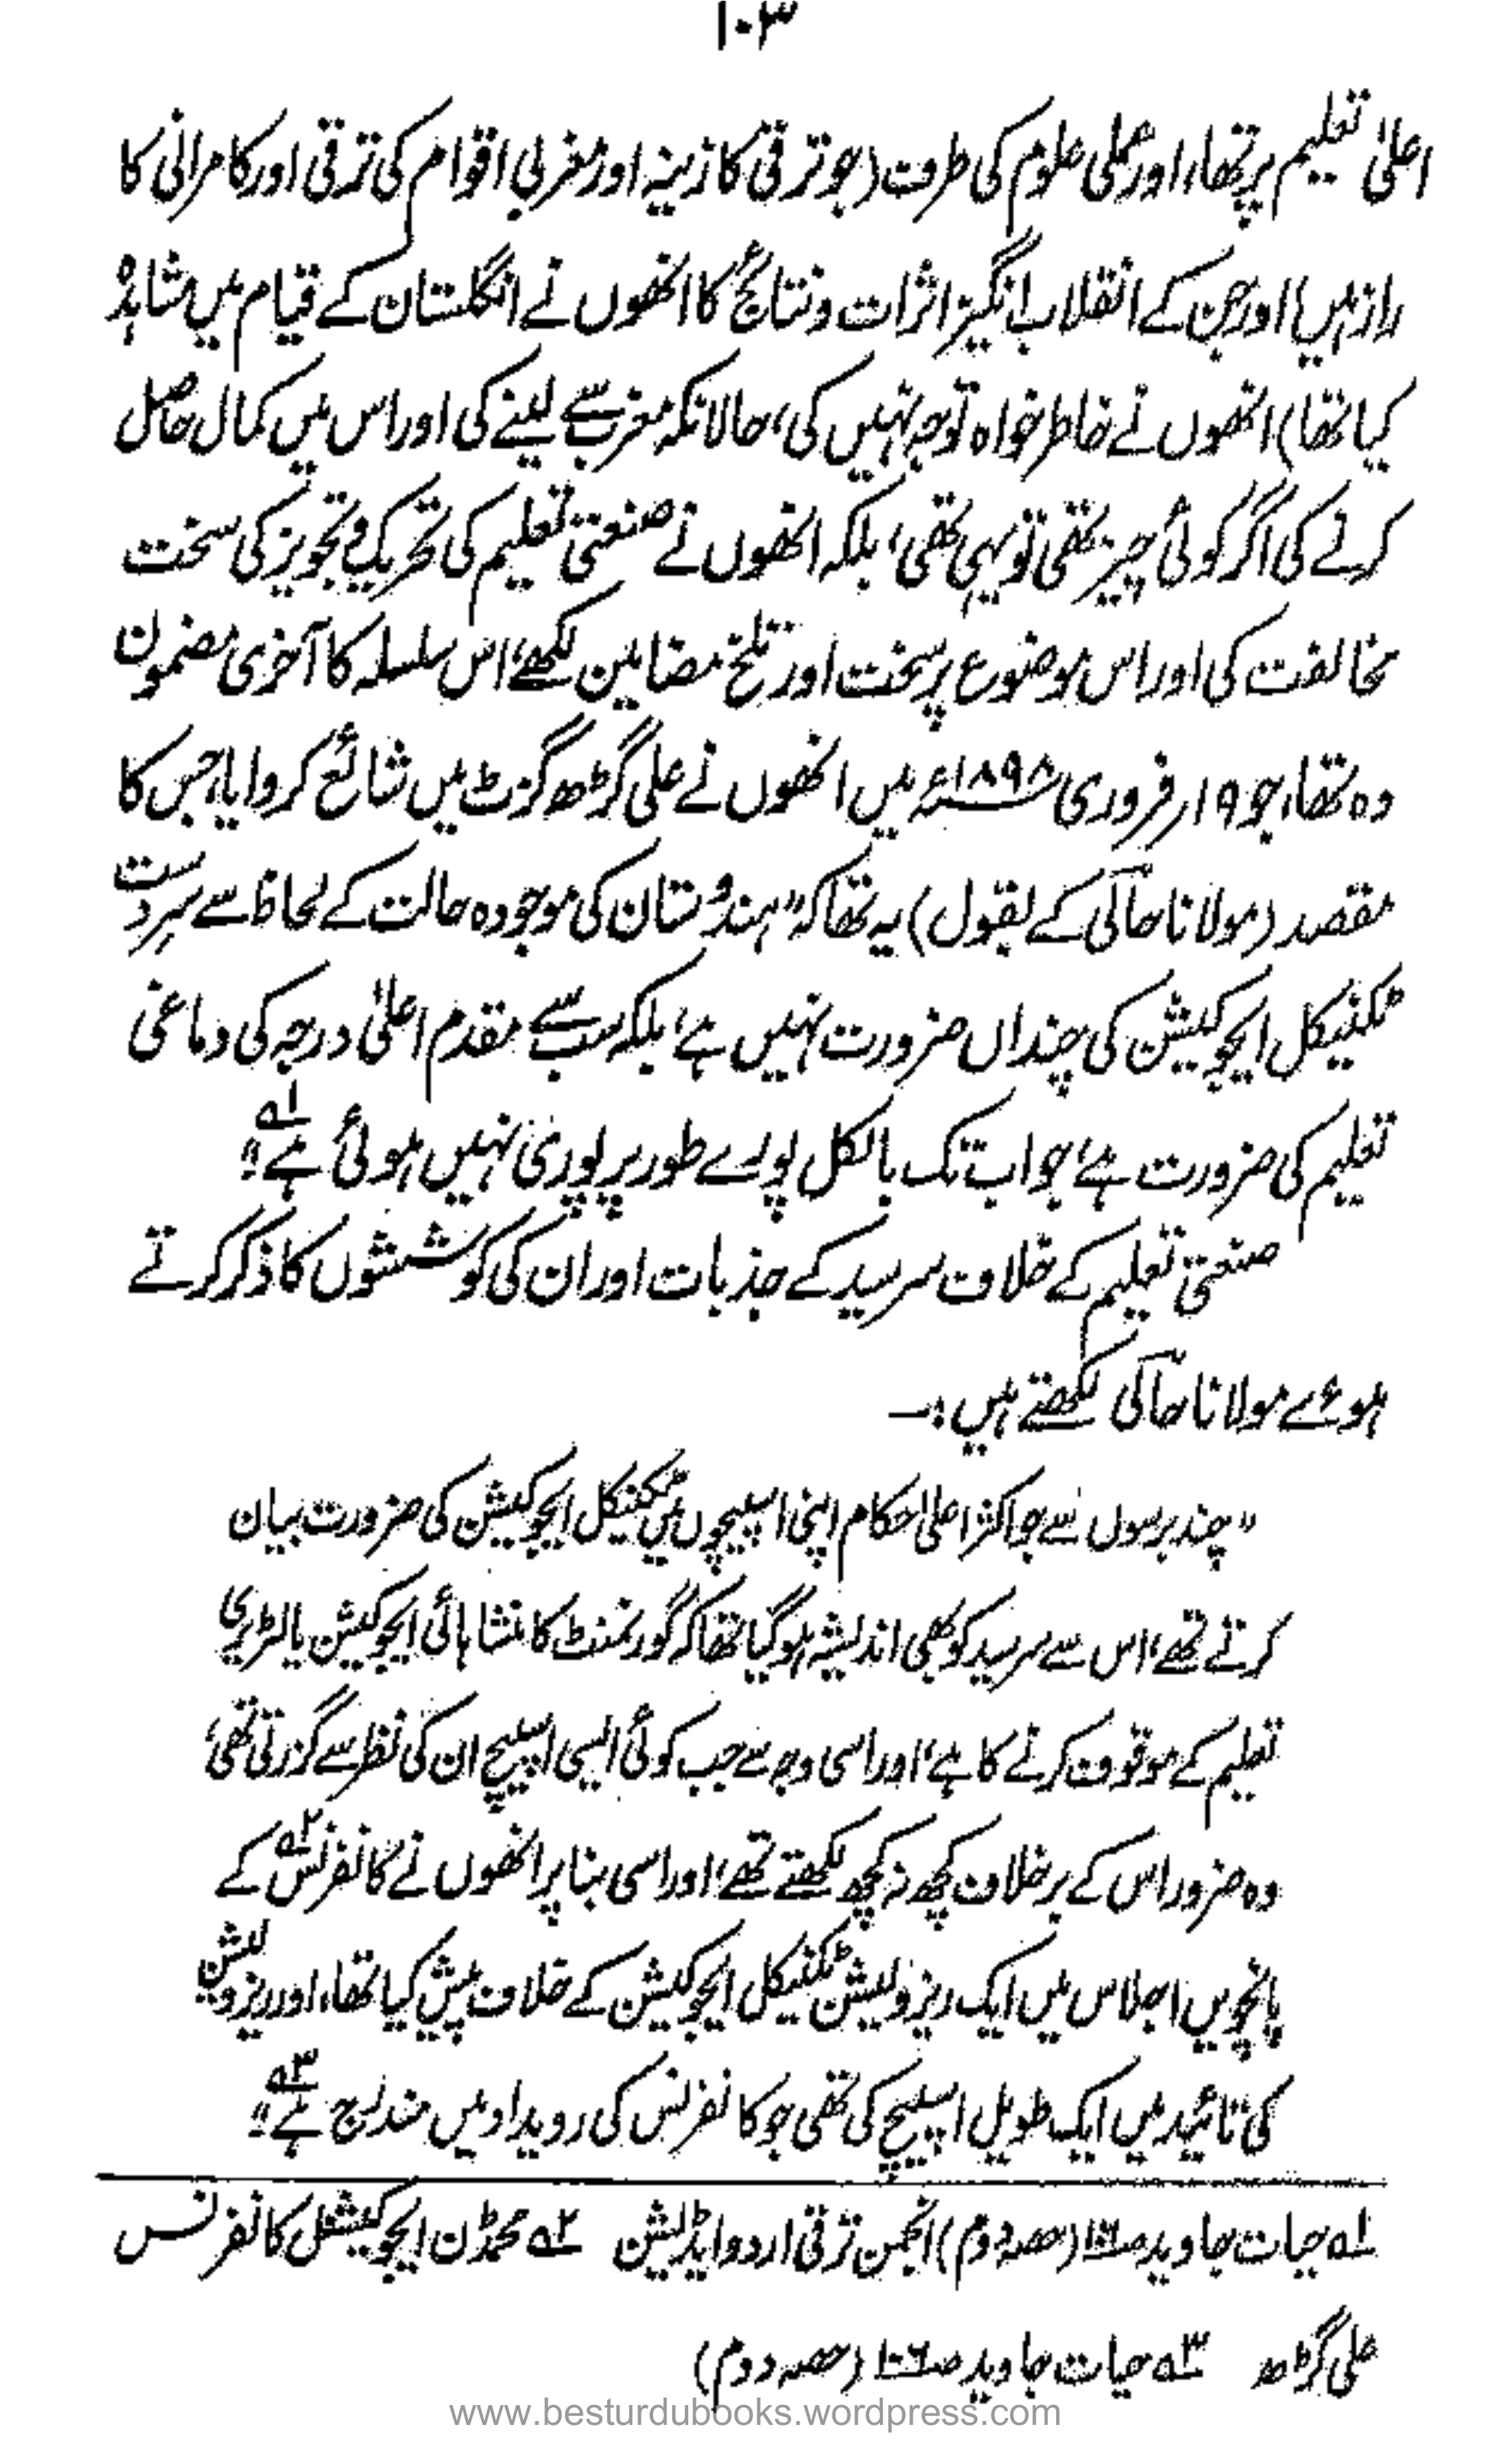 ۱۰۳
اعلیٰ تعلیم پر تھا، اور عملی علوم کی طرف (جو ترقی کا زینہ اور مغربی اقوام کی ترقی اور کامرانی کا
راز ہیں اور جن کے انقلاب انگیز اثرات و نتائج کا انھوں نے انگلستان کے قیام میں مشاہدہ
کیا تھا) انھوں نے خاطر خواہ توجہ نہیں کی، حالانکہ مغرب سے لینے کی اور اس میں کمال حاصل
کرنے کی اگر کوئی چیز تھی تو یہی تھی، بلکہ انھوں نے صنعتی تعلیم کی تحریک و تجویز کی سخت
مخالفت کی اور اس موضوع پر سخت اور تلخ مضامین لکھے، اس سلسلہ کا آخری مضمون
وہ تھا، جو ۱۹؍ فروری ۱۸۹۸ء میں انھوں نے علی گڑھ گزٹ میں شائع کروایا، جس کا
مقصد (مولانا حالؔی کے بقول) یہ تھا کہ "ہندوستان کی موجودہ حالت کے لحاظ سے سردست
ٹکنیکل ایجوکیشن کی چنداں ضرورت نہیں ہے، بلکہ سب سے مقدم اعلیٰ درجہ کی دماغی
تعلیم کی ضرورت ہے، جو اب تک بالکل پورے طور پر پوری نہیں ہوئی ہے" ۱ھ
صنعتی تعلیم کے خلاف سرسید کے جذبات اور ان کی کوششوں کا ذکر کرتے
ہوئے مولانا حالؔی لکھتے ہیں:۔
"چند برسوں سے جو اکثر اعلیٰ حکام اپنی اسپیچوں میں ٹکنیکل ایجوکیشن کی ضرورت بیان
کرتے تھے، اس سے سرسید کو بھی اندیشہ ہوگیا تھا کہ گورنمنٹ کا منشا ہائی ایجوکیشن یا لٹریری
تعلیم کے موقوف کرنے کا ہے، اور اسی وجہ سے جب کوئی ایسی اسپیچ ان کی نظر سے گزرتی تھی،
وہ ضرور اس کے برخلاف کچھ نہ کچھ لکھتے تھے، اور اسی بنا پر انھوں نے کانفرنس ۲ھ کے
پانچویں اجلاس میں ایک ریزولیشن ٹکنیکل ایجوکیشن کے خلاف پیش کیا تھا، اور ریزولیشن
کی تائید میں ایک طویل اسپیچ کی تھی جو کانفرنس کی رویداد میں مندرج ہے" ۳ھ
۱ھ حیات جاوید (حصہ دوم) انجمن ترقی اردو ایڈیشن ۲ھ محمڈن ایجوکیشنل کانفرنس
علی گڑھ ۳ھ حیات جاوید ص۱۰۶ (حصہ دوم)
www.besturdubooks.wordpress.com